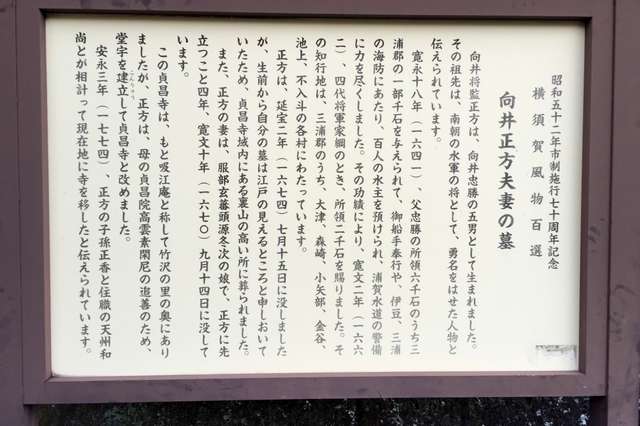 昭和五十二年市制施行七十周年記念
横須賀風物百選
向井正方夫妻の墓
向井将監正方は、向井忠勝の五男として生まれました。
その祖先は、南朝の水軍の将として、勇名をはせた人物と
伝えられています。
寛永十八年（一六四一）、父忠勝の所領六千石のうち三
浦郡の一部千石を与えられて、御船手奉行や、伊豆、三浦
の海防にあたり、百人の水主を預けられ、浦賀水道の警備
に力を尽くしました。その功績により、寛文二年（一六六
二）、四代将軍家綱のとき、所領二千石を賜りました。そ
の知行地は、三浦郡のうち、大津、森崎、小矢部、金谷、
池上、不入斗の各村にわたっています。
正方は、延宝二年（一六七四）七月十五日に没しました
が、生前から自分の墓は江戸の見えるところと申しおいて
いたため、貞昌寺域内にある裏山の高い所に葬られました。
また、正方の妻は、服部玄蕃頭源冬次の娘で、正方に先
立つこと四年、寛文十年（一六七〇）九月十四日に没して
います。
この貞昌寺は、もと吸江庵と称して竹沢の里の奥にあり
ましたが、正方は、母の貞昌院高雲素閑尼の追善のため、
堂宇を建立して貞昌寺と改めました。
こんりゅう
安永三年（一七七四）、正方の子孫正香と住職の天州和
尚とが相計って現在地に寺を移したと伝えられています。